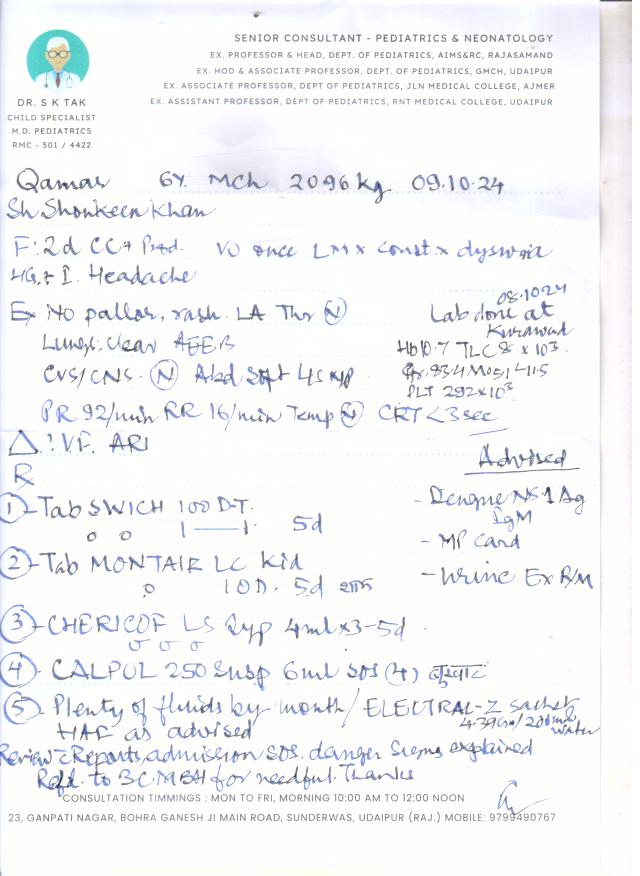 SENIOR CONSULTANT - PEDIATRICS & NEONATOLOGY
EX. PROFESSOR & HEAD, DEPT. OF PEDIATRICS, AIMS&RC, RAJASAMAND
EX. HOD & ASSOCIATE PROFESSOR, DEPT. OF PEDIATRICS, GMCH, UDAIPUR
EX. ASSOCIATE PROFESSOR, DEPT OF PEDIATRICS, JLN MEDICAL COLLEGE, AJMER
EX. ASSISTANT PROFESSOR, DEPT OF PEDIATRICS, RNT MEDICAL COLLEGE, UDAIPUR
DR. S K TAK
CHILD SPECIALIST
M.D. PEDIATRICS
RMC - 501 / 4422
Qamar 6Y. MCh 20.96 kg 09.10.24
Sh Shoukeen Khan
F: 2d CC+ Prod. VO once LM x Const x dysuria
Headache
Ex No pallor, rash. LA Thr (N)
Lungs: clear AEEB
CVS/CNS. (N) Abd Soft LS NP
PR 92/min RR 16/min Temp (N) CRT < 3 sec
08.10.24
Lab done at
Kurawad
Hb 10.7 TLC 8 x 10³
PLT 292x10³
Δ: VF. ARI
R
Advised
- Dengue NS-1 Ag
IgM
- MP card
- Urine Ex R/M
(1) - Tab SWICH 100 D.T.
1——1 5d
(2) - Tab MONTAIR LC Kid
1 OD. 5d शाम
(3) - CHERICOF LS Syp 4ml x 3-5d
(4) - CALPOL 250 Susp 6ml SOS (4)
(5) - Plenty of fluids by mouth / ELECTRAL-Z sachets
4.39Gm/200ml water
HAF as advised
Review c̄ Reports, admission SOS. danger signs explained
Refd. to BCMBH for needful. Thanks
CONSULTATION TIMMINGS : MON TO FRI, MORNING 10:00 AM TO 12:00 NOON
23, GANPATI NAGAR, BOHRA GANESH JI MAIN ROAD, SUNDERWAS, UDAIPUR (RAJ.) MOBILE: 9799490767